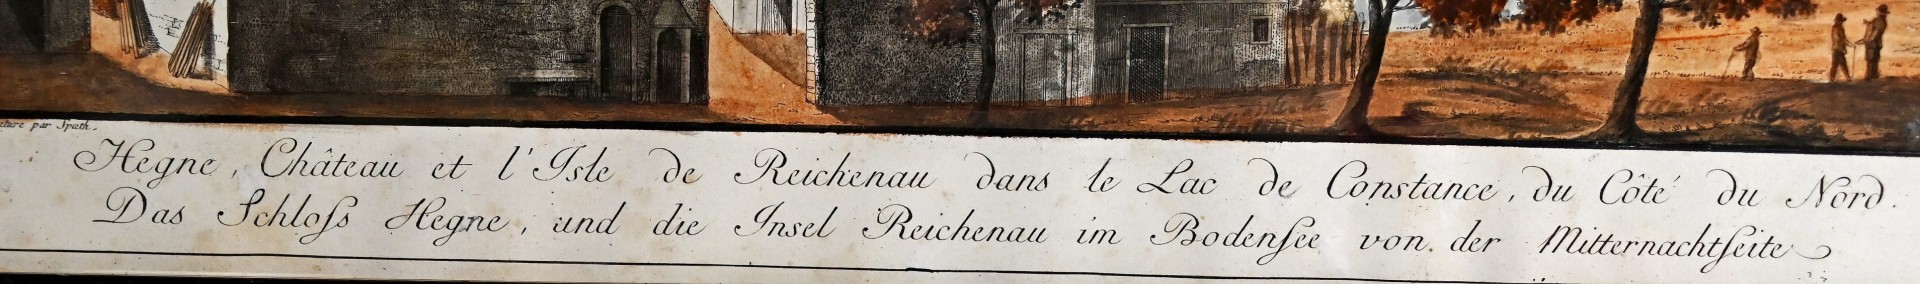 par Spœth.
Hegne, Château et l'Isle de Reichenau dans le Lac de Constance, du Côté du Nord.
Das Schloſs Hegne, und die Insel Reichenau im Bodenſee von der Mitternachtſeite